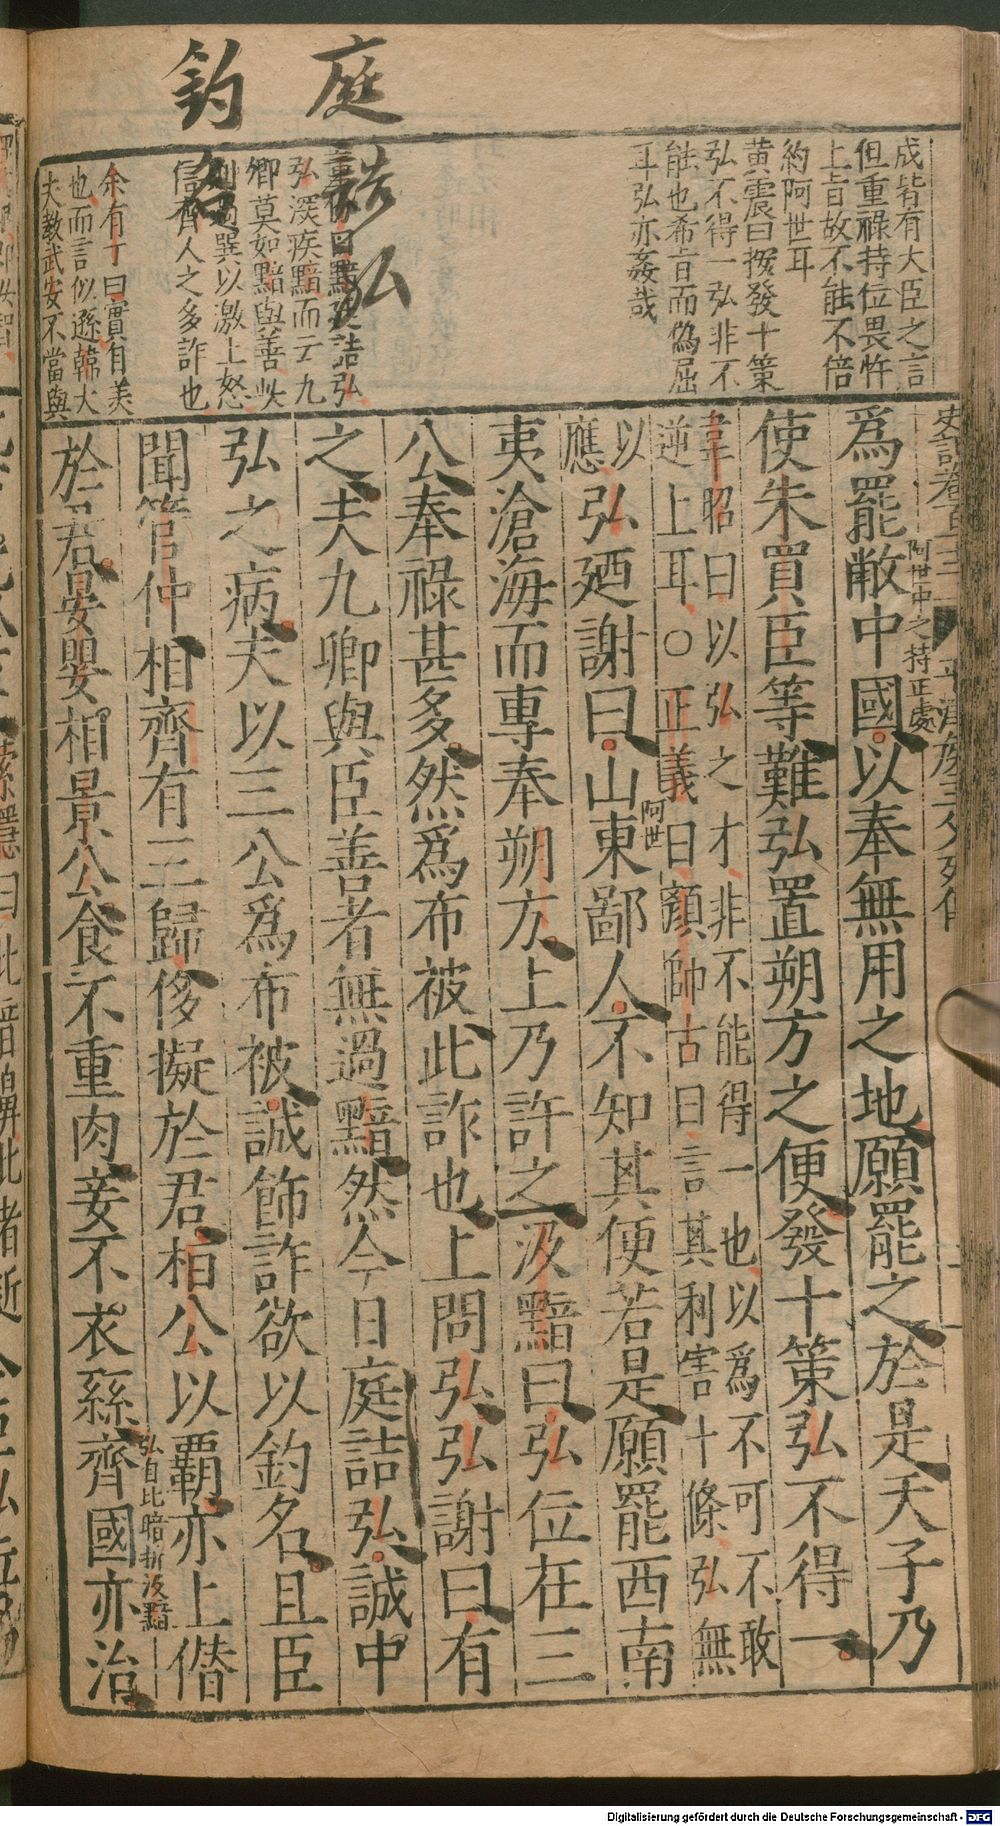 庭詰弘
釣名
成皆有大臣之言
但重祿持位畏忤
上旨故不能不倍
約阿世耳
黄震曰撰發十策
弘不得一弘非不
能也希旨而偽屈
耳弘亦姦哉
弘深疾黯而云九
卿莫如黯與善此
過巽以激上怒
信齊人之多詐也
余有丁曰實自美
也而言似遜韓大
夫教武安不當與
阿世中之持正處
爲罷敝中國以奉無用之地願罷之於是天子乃
使朱買臣等難弘置朔方之便發十策弘不得一
韋昭曰以弘之才非不能得一也以爲不可不敢
逆上耳○正義曰顏師古曰言其利害十條弘無
以應
阿世
弘廼謝曰山東鄙人不知其便若是願罷西南
夷滄海而專奉朔方上乃許之汲黯曰弘位在三
公奉祿甚多然爲布被此詐也上問弘弘謝曰有
之夫九卿與臣善者無過黯然今日庭詰弘誠中
弘之病夫以三公爲布被誠飾詐欲以釣名且臣
聞管仲相齊有三歸侈擬於君桓公以霸亦上僭
弘自比暗折汲黯
於君晏嬰相景公食不重肉妾不衣絲齊國亦治
Digitalisierung gefördert durch die Deutsche Forschungsgemeinschaft - DFG